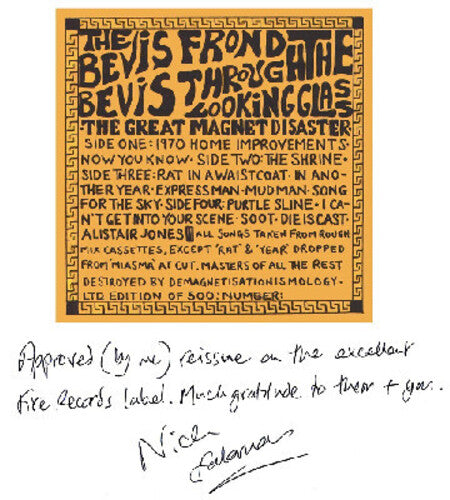 THE BEVIS FROND THE
BEVIS THROUGH THE
LOOKING GLASS
·THE GREAT MAGNET DISASTER·
SIDE ONE:1970 HOME IMPROVEMENTS·
NOW YOU KNOW·SIDE TWO:THE SHRINE·
SIDE THREE:RAT IN A WAISTCOAT·IN ANO-
THER YEAR·EXPRESS MAN·MUDMAN·SONG
FOR THE SKY·SIDE FOUR:PURTLE SLINE·I CA-
N'T GET INTO YOUR SCENE·SOOT·DIE IS CAST·
ALISTAIR JONES ALL SONGS TAKEN FROM ROUGH
MIX CASSETTES, EXCEPT 'RAT' & 'YEAR' DROPPED
FROM 'MIASMA' AT CUT. MASTERS OF ALL THE REST
DESTROYED BY DEMAGNETISATIONISMOLOGY·
LTD EDITION OF 500:NUMBER:
Approved (by me) reissue on the excellent
Fire Records label. Much gratitude to them + you.
Nick
Saloman